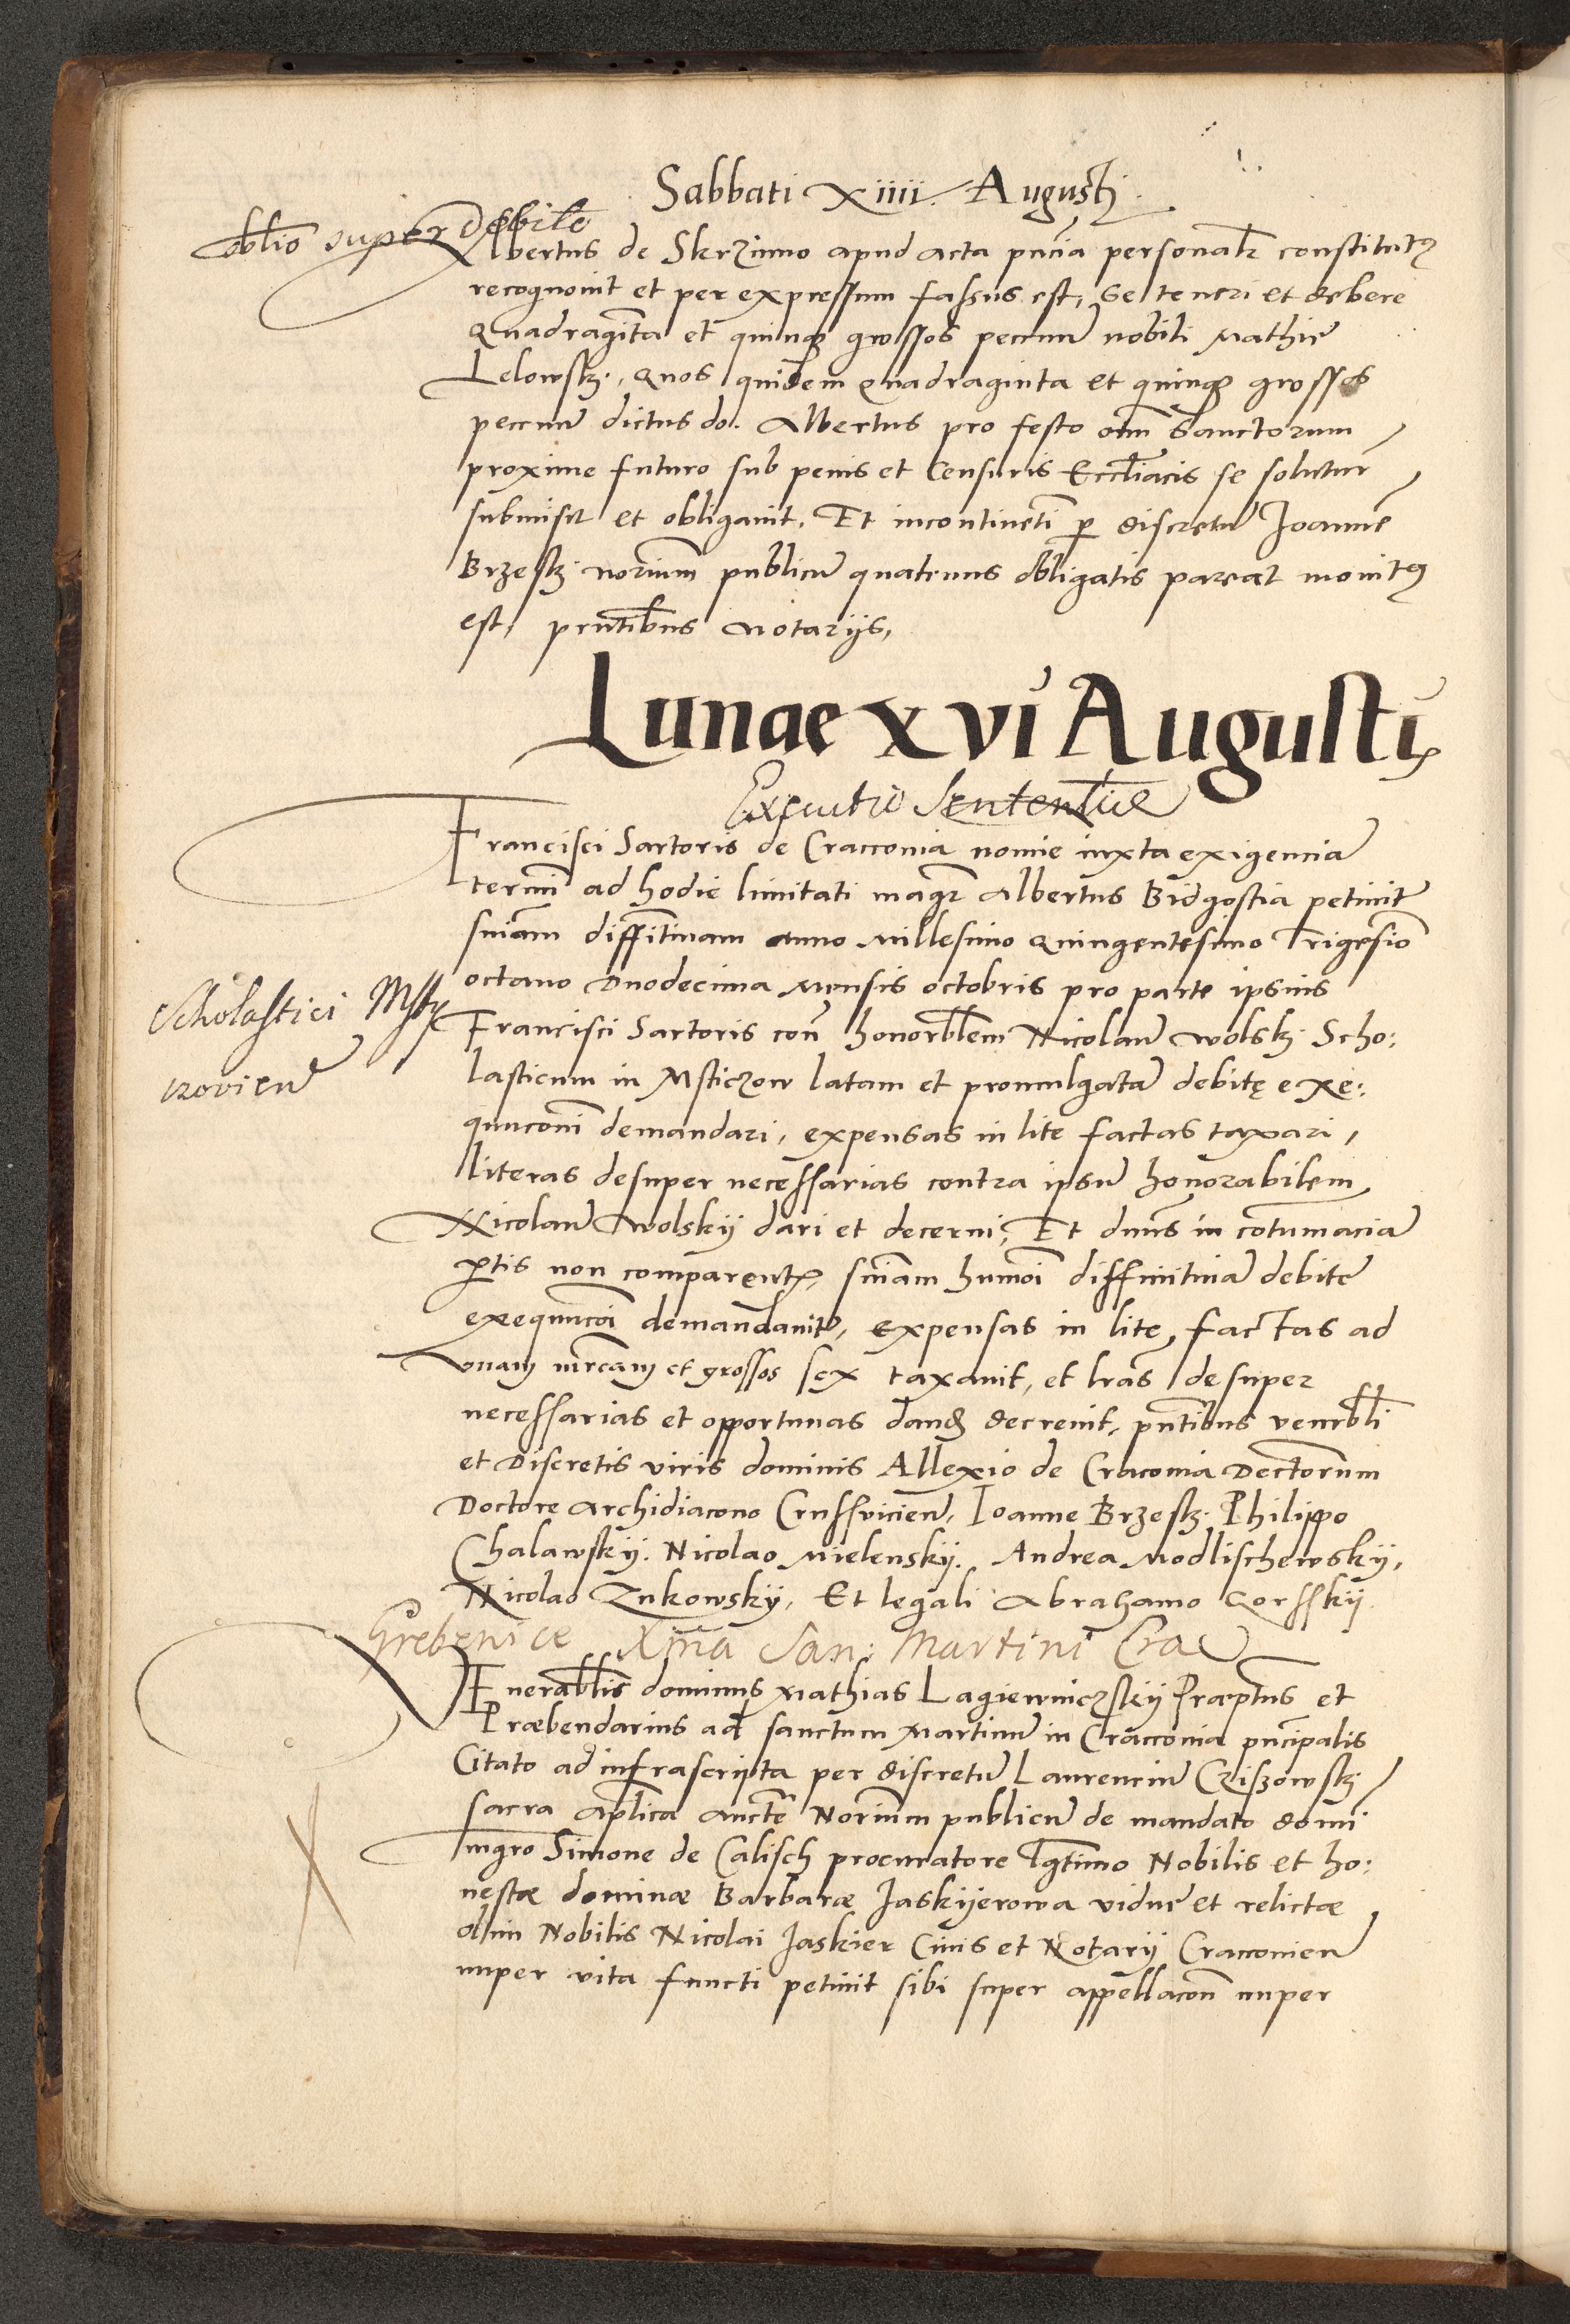 Sabbati Xiiii. Augusti
oblio super debite
Albertus de Skrzinno apud acta pncia personalr constitutus
recognouit et per expressum fassus est, Se teneri et debere
Quadraginta et quinque grossos pecuniae nobili Mathie
Lelowsky, quos quidem quadraginta et quinque grossos
pecuniae dictus do. Albertus pro festo oim Sanctorum
proxime futuro sub penis et Censuris Eccliacis se soluturum
submisit et obligauit. Et incontineti per discretu Joanne
Brzesky norium publicu quatenus obligatis pareat monitus
est, pntibus Notarijs,
Lunae xvi Augusti
Executio Sententiae
Francisci Sartoris de Cracouia nomine iuxta exigencia
termi ad hodie limitati magr Albertus Bidgostia petiuit
sniam diffitiuam anno Millesimo Quingentesimo Trigesio
octauo Duodecima Mensis octobris pro parte ipsius
Scholastici Mstic
zovien
Francisci Sartoris con honorblem Nicolau Wolsky Scho:
lasticum in Msticzow latam et promulgata debite exe:
qunconi demandari, expensas in lite factas taxari,
literas desuper necessarias contra ipsu honorabilem
Nicolau Wolskij dari et decerni, Et dnus in cotumacia
ptis non comparentis, sniam humoi diffinitiua debite
exequucoi demandauit, expensas in lite factas ad
vnam mrcam et grossos sex taxauit, et lras desuper
necessarias et opportunas dand decreuit, pntibus venerbli
et Discretis viris dominis Allexio de Cracouia Decretorum
Doctore Archidiacono Crusvicien, Ioanne Brzesky Philippo
Chalawskij. Nicolao Mielenskij. Andrea Modlischewskij,
Nicolao Zukowskij, Et legali Abrahamo Gorsskij
Grebenice Xma San: Martini Crac
Venerablis dominus Mathias Lagiewniczskij Praeptus et
Praebendarius ad sanctum Martinu in Cracouia pncipalis
Citato ad infrascripta per discretu Laurenciu Cziszowsky
sacra aplica aucte Norium publicu de mandato domi
mgro Simone de Calisch procuratore lgtimo Nobilis et ho:
nestae dominae Barbarae Jaskijerowa vidue et relictae
olim Nobilis Nicolai Jaskier Ciuis et Notarij Cracouien
nuper vita functi petiuit sibi super appellacon nuper